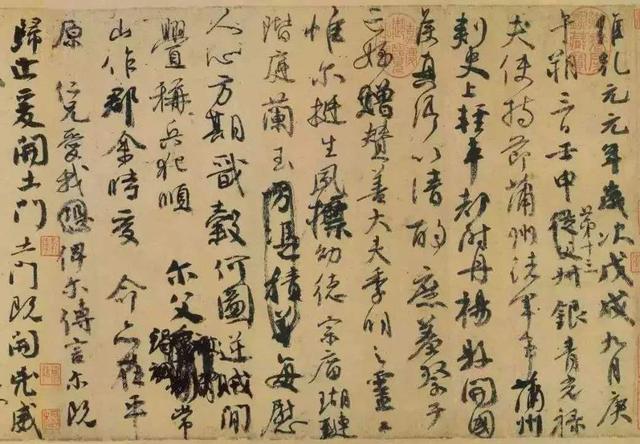 維乾元元年歲次戊戌九月庚
午朔三日壬申第十三從父叔銀青光祿
夫使持節蒲州諸軍事蒲州
刺史上輕車都尉丹楊縣開國
侯真卿以清酌庶羞祭于
亡姪贈贊善大夫季明之靈曰
惟爾挺生夙標幼德宗廟瑚璉
階庭蘭玉方憑積善每慰
人心方期戩穀何圖逆賊閒
釁稱兵犯順 爾父竭誠常
山作郡余時受 命亦在平
原 仁兄愛我恐俾爾傳言爾既
歸止爰開土門土門既開凶威